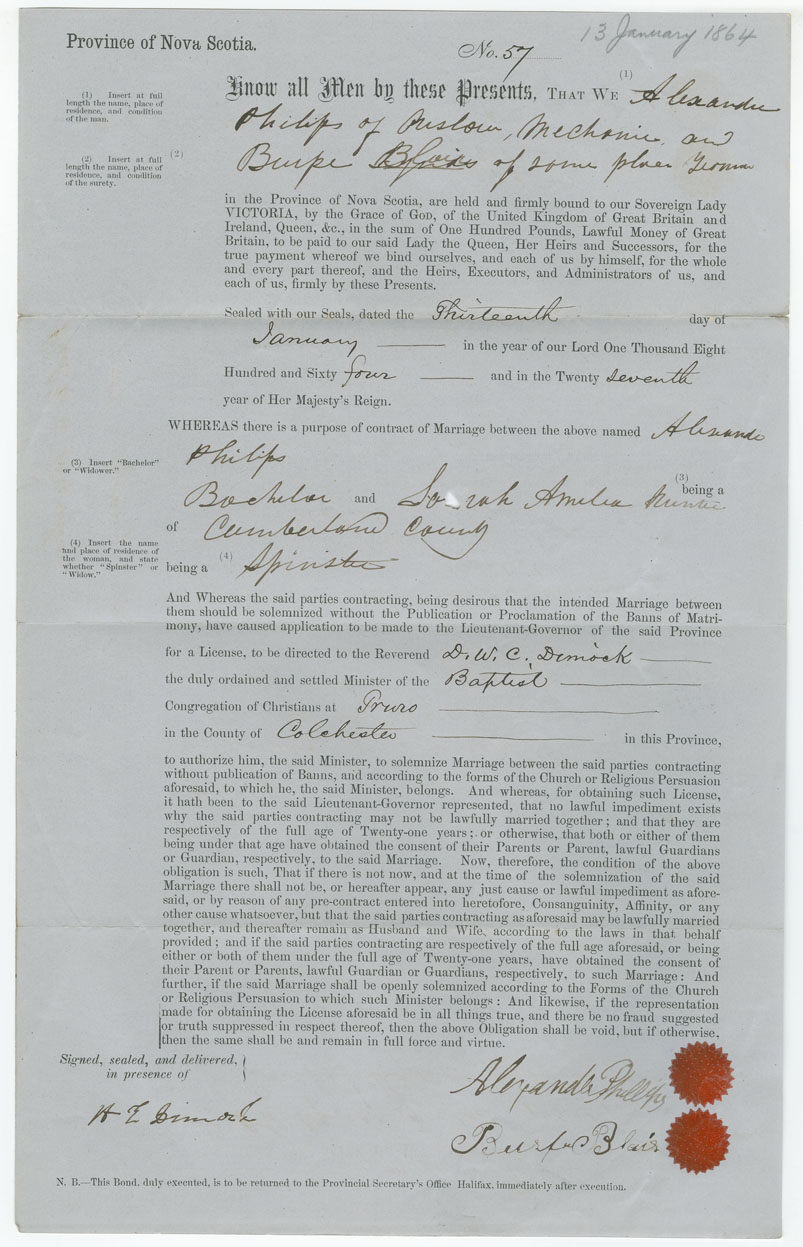 13 January 1864
Province of Nova Scotia.
No. 57
(1) Insert at full
length the name, place of
residence, and condition
of the man.
Know all Men by these Presents, THAT WE (1) Alexander
Philips of Onslow, Mechanic, and
(2) Insert at full
length the name, place of
residence, and condition
of the surety.
(2) Burpe Blair of same place Yeoman
in the Province of Nova Scotia, are held and firmly bound to our Sovereign Lady
VICTORIA, by the Grace of GOD, of the United Kingdom of Great Britain and
Ireland, Queen, &c., in the sum of One Hundred Pounds, Lawful Money of Great
Britain, to be paid to our said Lady the Queen, Her Heirs and Successors, for the
true payment whereof we bind ourselves, and each of us by himself, for the whole
and every part thereof, and the Heirs, Executors, and Administrators of us, and
each of us, firmly by these Presents.
Sealed with our Seals, dated the Thirteenth day of
January in the year of our Lord One Thousand Eight
Hundred and Sixty four and in the Twenty Seventh
year of Her Majesty's Reign.
WHEREAS there is a purpose of contract of Marriage between the above named Alexande
Philips
(3) Insert "Bachelor"
or "Widower."
(3) being a
Bachelor and Sarah Amelia
of Cumberland County
(4) Insert the name
and place of residence of
the woman, and state
whether "Spinster" or
"Widow."
being a (4) Spinster
And Whereas the said parties contracting, being desirous that the intended Marriage between
them should be solemnized without the Publication or Proclamation of the Banns of Matri-
mony, have caused application to be made to the Lieutenant-Governor of the said Province
for a License, to be directed to the Reverend D. W. C. Dimock
the duly ordained and settled Minister of the Baptist
Congregation of Christians at Truro
in the County of Colchester in this Province,
to authorize him, the said Minister, to solemnize Marriage between the said parties contracting
without publication of Banns, and according to the forms of the Church or Religious Persuasion
aforesaid, to which he, the said Minister, belongs. And whereas, for obtaining such License,
it hath been to the said Lieutenant-Governor represented, that no lawful impediment exists
why the said parties contracting may not be lawfully married together; and that they are
respectively of the full age of Twenty-one years; or otherwise, that both or either of them
being under that age have obtained the consent of their Parents or Parent, lawful Guardians
or Guardian, respectively, to the said Marriage. Now, therefore, the condition of the above
obligation is such, That if there is not now, and at the time of the solemnization of the said
Marriage there shall not be, or hereafter appear, any just cause or lawful impediment as afore-
said, or by reason of any pre-contract entered into heretofore, Consanguinity, Affinity, or any
other cause whatsoever, but that the said parties contracting as aforesaid may be lawfully married
together, and thereafter remain as Husband and Wife, according to the laws in that behalf
provided; and if the said parties contracting are respectively of the full age aforesaid, or being
either or both of them under the full age of Twenty-one years, have obtained the consent of
their Parent or Parents, lawful Guardian or Guardians, respectively, to such Marriage: And
further, if the said Marriage shall be openly solemnized according to the Forms of the Church
or Religious Persuasion to which such Minister belongs: And likewise, if the representation
made for obtaining the License aforesaid be in all things true, and there be no fraud suggested
or truth suppressed in respect thereof, then the above Obligation shall be void, but if otherwise,
then the same shall be and remain in full force and virtue.
Signed, sealed, and delivered,
in presence of
H E Dimock
Alexander Phillips
Burpe Blair
N. B.—This Bond, duly executed, is to be returned to the Provincial Secretary's Office Halifax, immediately after execution.